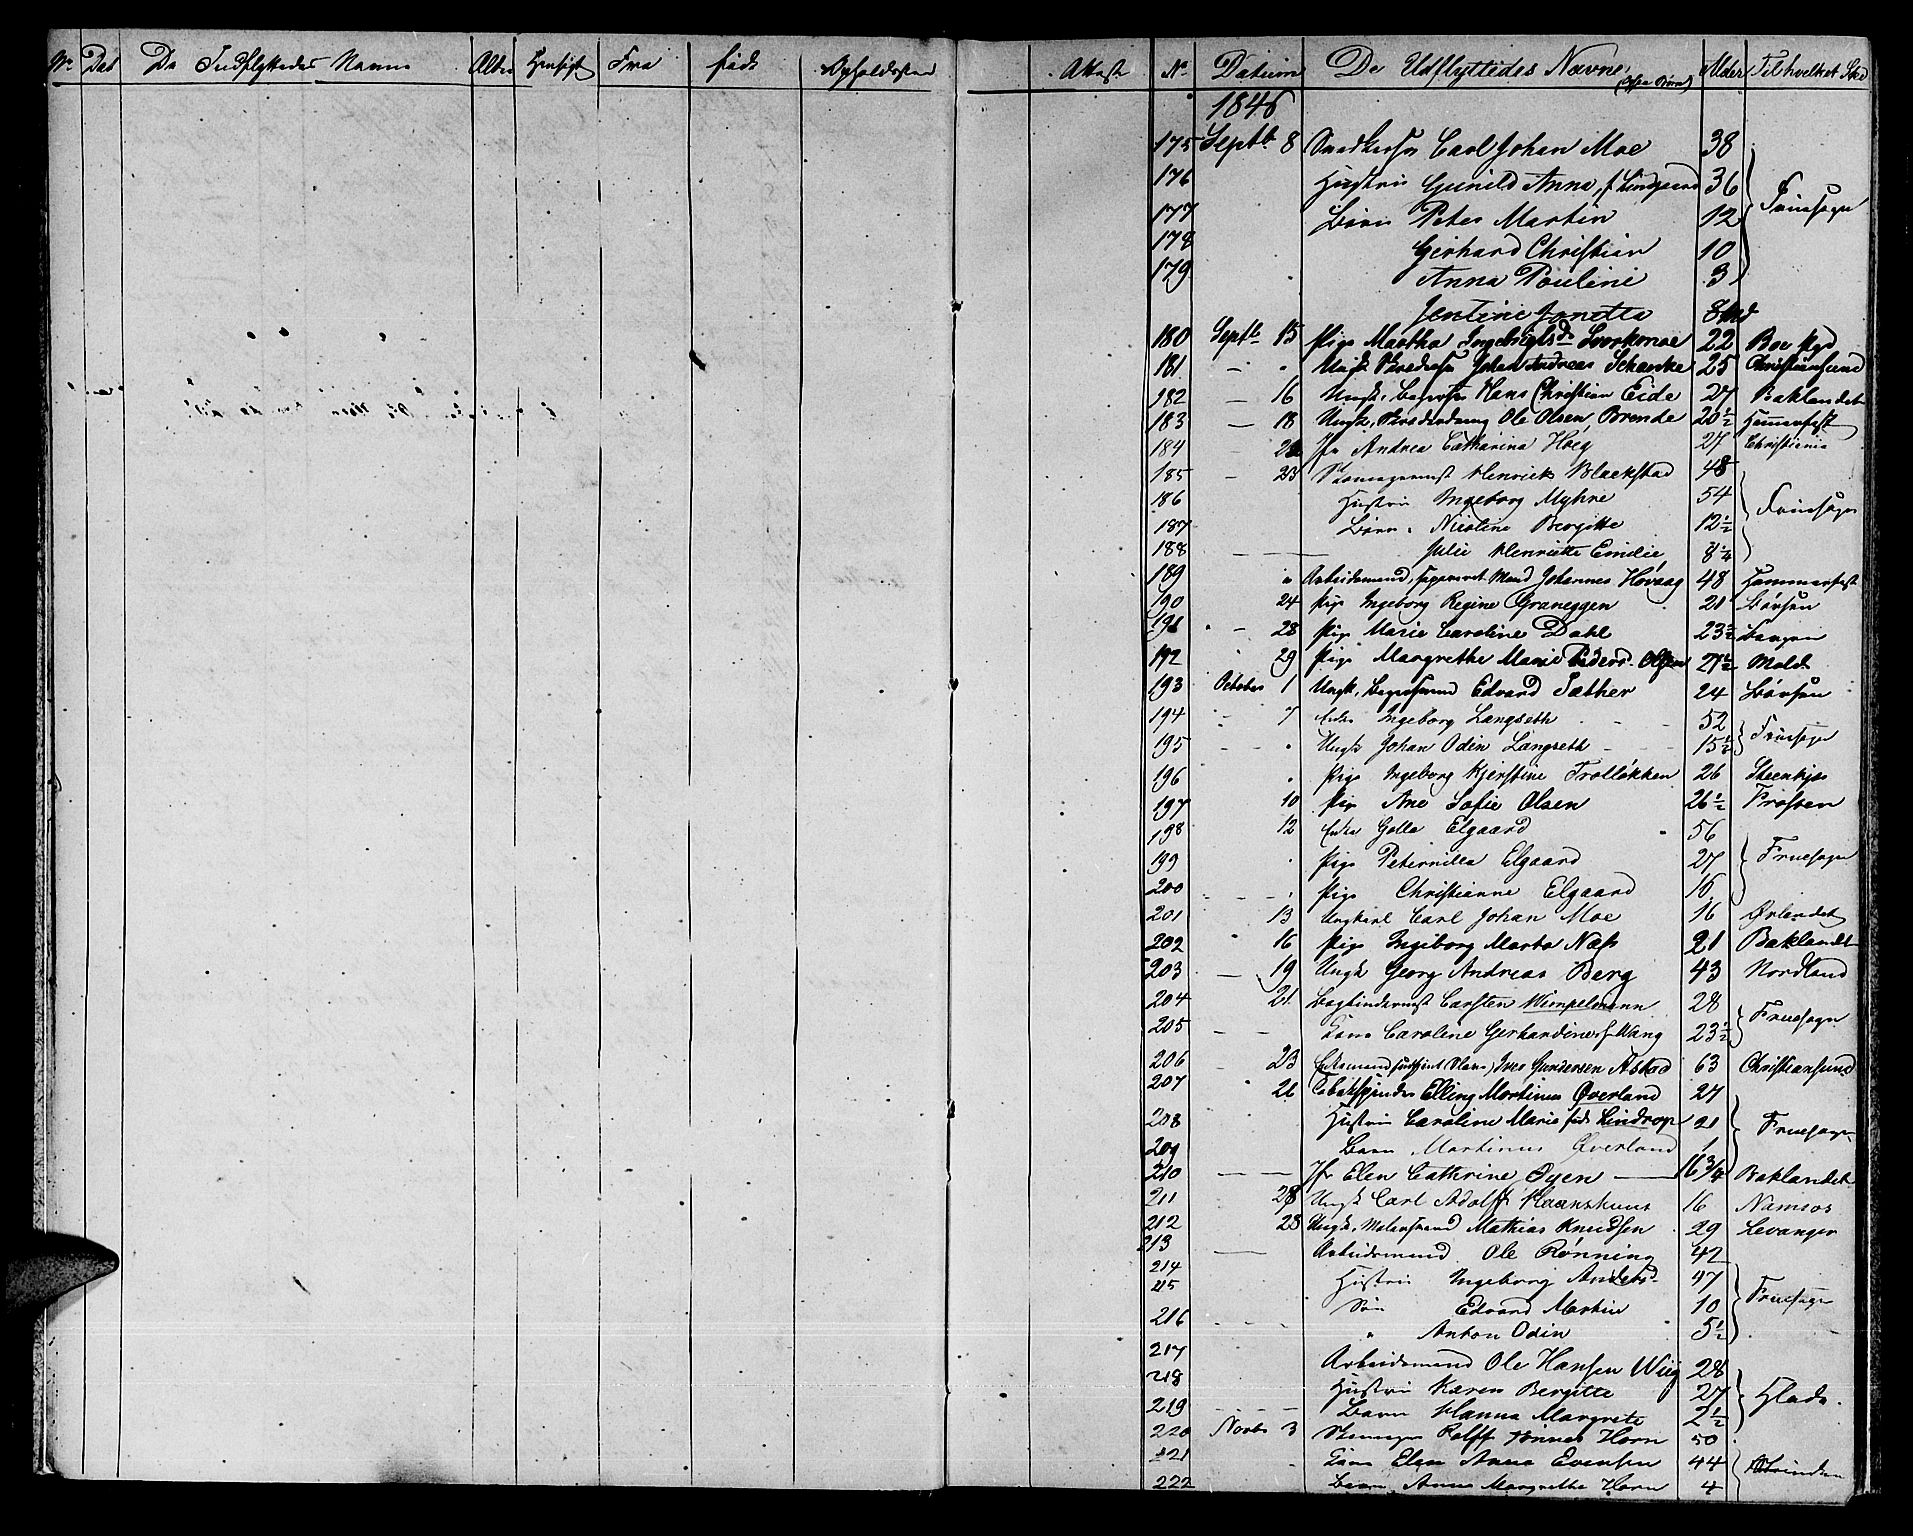 No Dat De Indflyttedes Navne Alder Hensigt Fra född Opholdssted Attest No Datum De Udflyttedes Navne, Alder Til hvilket Sted
1846
175 Septb 8 Carl Johan Moe 38
176 Hustru Gunild Anna, f. Lindgaard 36 Fruesogn
177 Børn Peter Martin 12
178 Gerhard Christian 10
179 Anna Pouline 3
Jentine Jonetta
180 Septb 15 Pige Martha Ingebrigtsd Svorkmoe 22 Boe Pgd
181 — " Ungk Johan Andreas Schancke 25 Christiansund
182 — 16 Ungk. Hans Christian Eide 27 Baklandet
183 — 18 Ungk. Ole Olsen Brende 20½ Hamerfest
184 Jfr Andrea Catharina Høeg 27 Christiania
185 — 23 Henrick Blackstad 48
186 Hustru Ingeborg Myhre 54 Fruesogn
187 Børn Nicoline Bergitte 12½
188 — Julie Henriette Emilie 8¼
189 " Arbeidsmand, Johannes Hovaag 48 Hammerfest
190 24 Pige Ingeborg Regine Graneggen 21 Børsen
191 — 28 Pige Marie Caroline Dahl 23½ Bergen
192 " 29 Pige Margrethe Marie Peders. Olsen 21½ Molde
193 October 1 Ungk. Edvard Sæther 24 Børsen
194 - 7 Enke Ingeborg Langseth 52
195 - " Ungk Johan Odin Langseth 15½ Fruesogn
196 " Pige Ingeborg Kjerstine Trolløkken 26 Steenkjær
197 10 Pige Ane Sofie Olsen 26½ Frosten
198 12 Enke Golla Elgaard 56
199 " Pige Peternilla Elgaard 27 Fruesogn
200 - " Pige Christianne Elgaard 16
201 13 Ungkarl Carl Johan Moe 16 Ørlandet
202 " 16 Pige Ingeborg Marta Næss 21 Baklandet
203 — 19 Ungk Georg Andreas Berg 43 Nordland
204 21 Bogbindermst Carsten Wimpelmann 28
205 — Kone Caroline Gerhardine f. Wang 23½ Fruesogn
206 — 23 Iver Gundersen Astad 63 Christiansund
207 Tobakspinder Elling Martinus Øverland 27
208 Hustru Caroline Marie föds Lindrop 21 Fruesogn
209 Barn Martinus Øverland 1
210 — Jfr Elen Cathrine Øyen 16 3/4 Baklandet
211 28 Ungk Carl Adolff 16 Namsos
212 28 Ungk. Malersvend Mathias Knudsen 29 Levanger
213 — Arbeidsmand Ole Rønning 42
214
215 Hustru Ingeborg Andersd. 47 Fruesogn
216 Søn Edvard Martin 10
" Anton Odin 5½
217
218 Arbeidsmand Ole Hansen Wiig 28
Hustru Karen Bergitte 27 Hlade
219 Barn Hanna Margrete 2½
220 Novbr 3 Rolff Horn 50
221 Kone Elen Anna Evensen 44 Strinden
222 Barn Anne Margrethe Horn 4